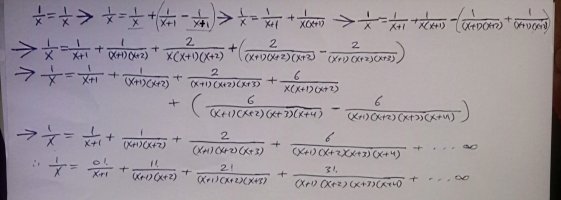 1/x = 1/x → 1/x = 1/x + (1/(x+1) − 1/(x+1)) → 1/x = 1/(x+1) + 1/(x(x+1)) → 1/x = 1/(x+1) + 1/(x(x+1)) − (1/((x+1)(x+2)) + 1/((x+1)(x+2)))
→ 1/x = 1/(x+1) + 1/((x+1)(x+2)) + 2/(x(x+1)(x+2)) + (2/((x+1)(x+2)(x+3)) − 2/((x+1)(x+2)(x+3)))
→ 1/x = 1/(x+1) + 1/((x+1)(x+2)) + 2/((x+1)(x+2)(x+3)) + 6/(x(x+1)(x+2))
+ (6/((x+1)(x+2)(x+3)(x+4)) − 6/((x+1)(x+2)(x+3)(x+4)))
→ 1/x = 1/(x+1) + 1/((x+1)(x+2)) + 2/((x+1)(x+2)(x+3)) + 6/((x+1)(x+2)(x+3)(x+4)) + .... ∞
∴ 1/x = 0!/(x+1) + 1!/((x+1)(x+2)) + 2!/((x+1)(x+2)(x+3)) + 3!/((x+1)(x+2)(x+3)(x+4)) + .... ∞